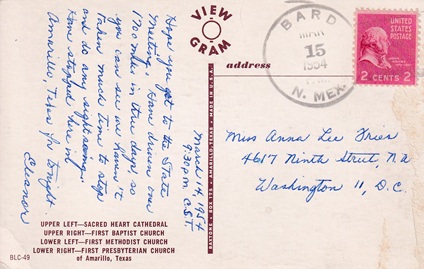 VIEW
GRAM
address
BARD
MAR
15
1954
N. MEX.
UNITED
STATES
POSTAGE
2 CENTS 2
March 14, 1954
9:30 p.m. C.S.T.
Hope you got to the State
Meeting. Have driven over
1700 miles in three days, so
you can see we haven't
taken much time to stop
and do any sight seeing.
Have stopped here in
Amarillo, Texas for tonight.
Eleanor
Miss Anna Lee
4617 Ninth Street, N.W.
Washington 11, D.C.
UPPER LEFT—SACRED HEART CATHEDRAL
UPPER RIGHT—FIRST BAPTIST CHURCH
LOWER LEFT—FIRST METHODIST CHURCH
LOWER RIGHT—FIRST PRESBYTERIAN CHURCH
of Amarillo, Texas
BLC-49
AMARILLO, TEXAS • MADE IN U.S.A.